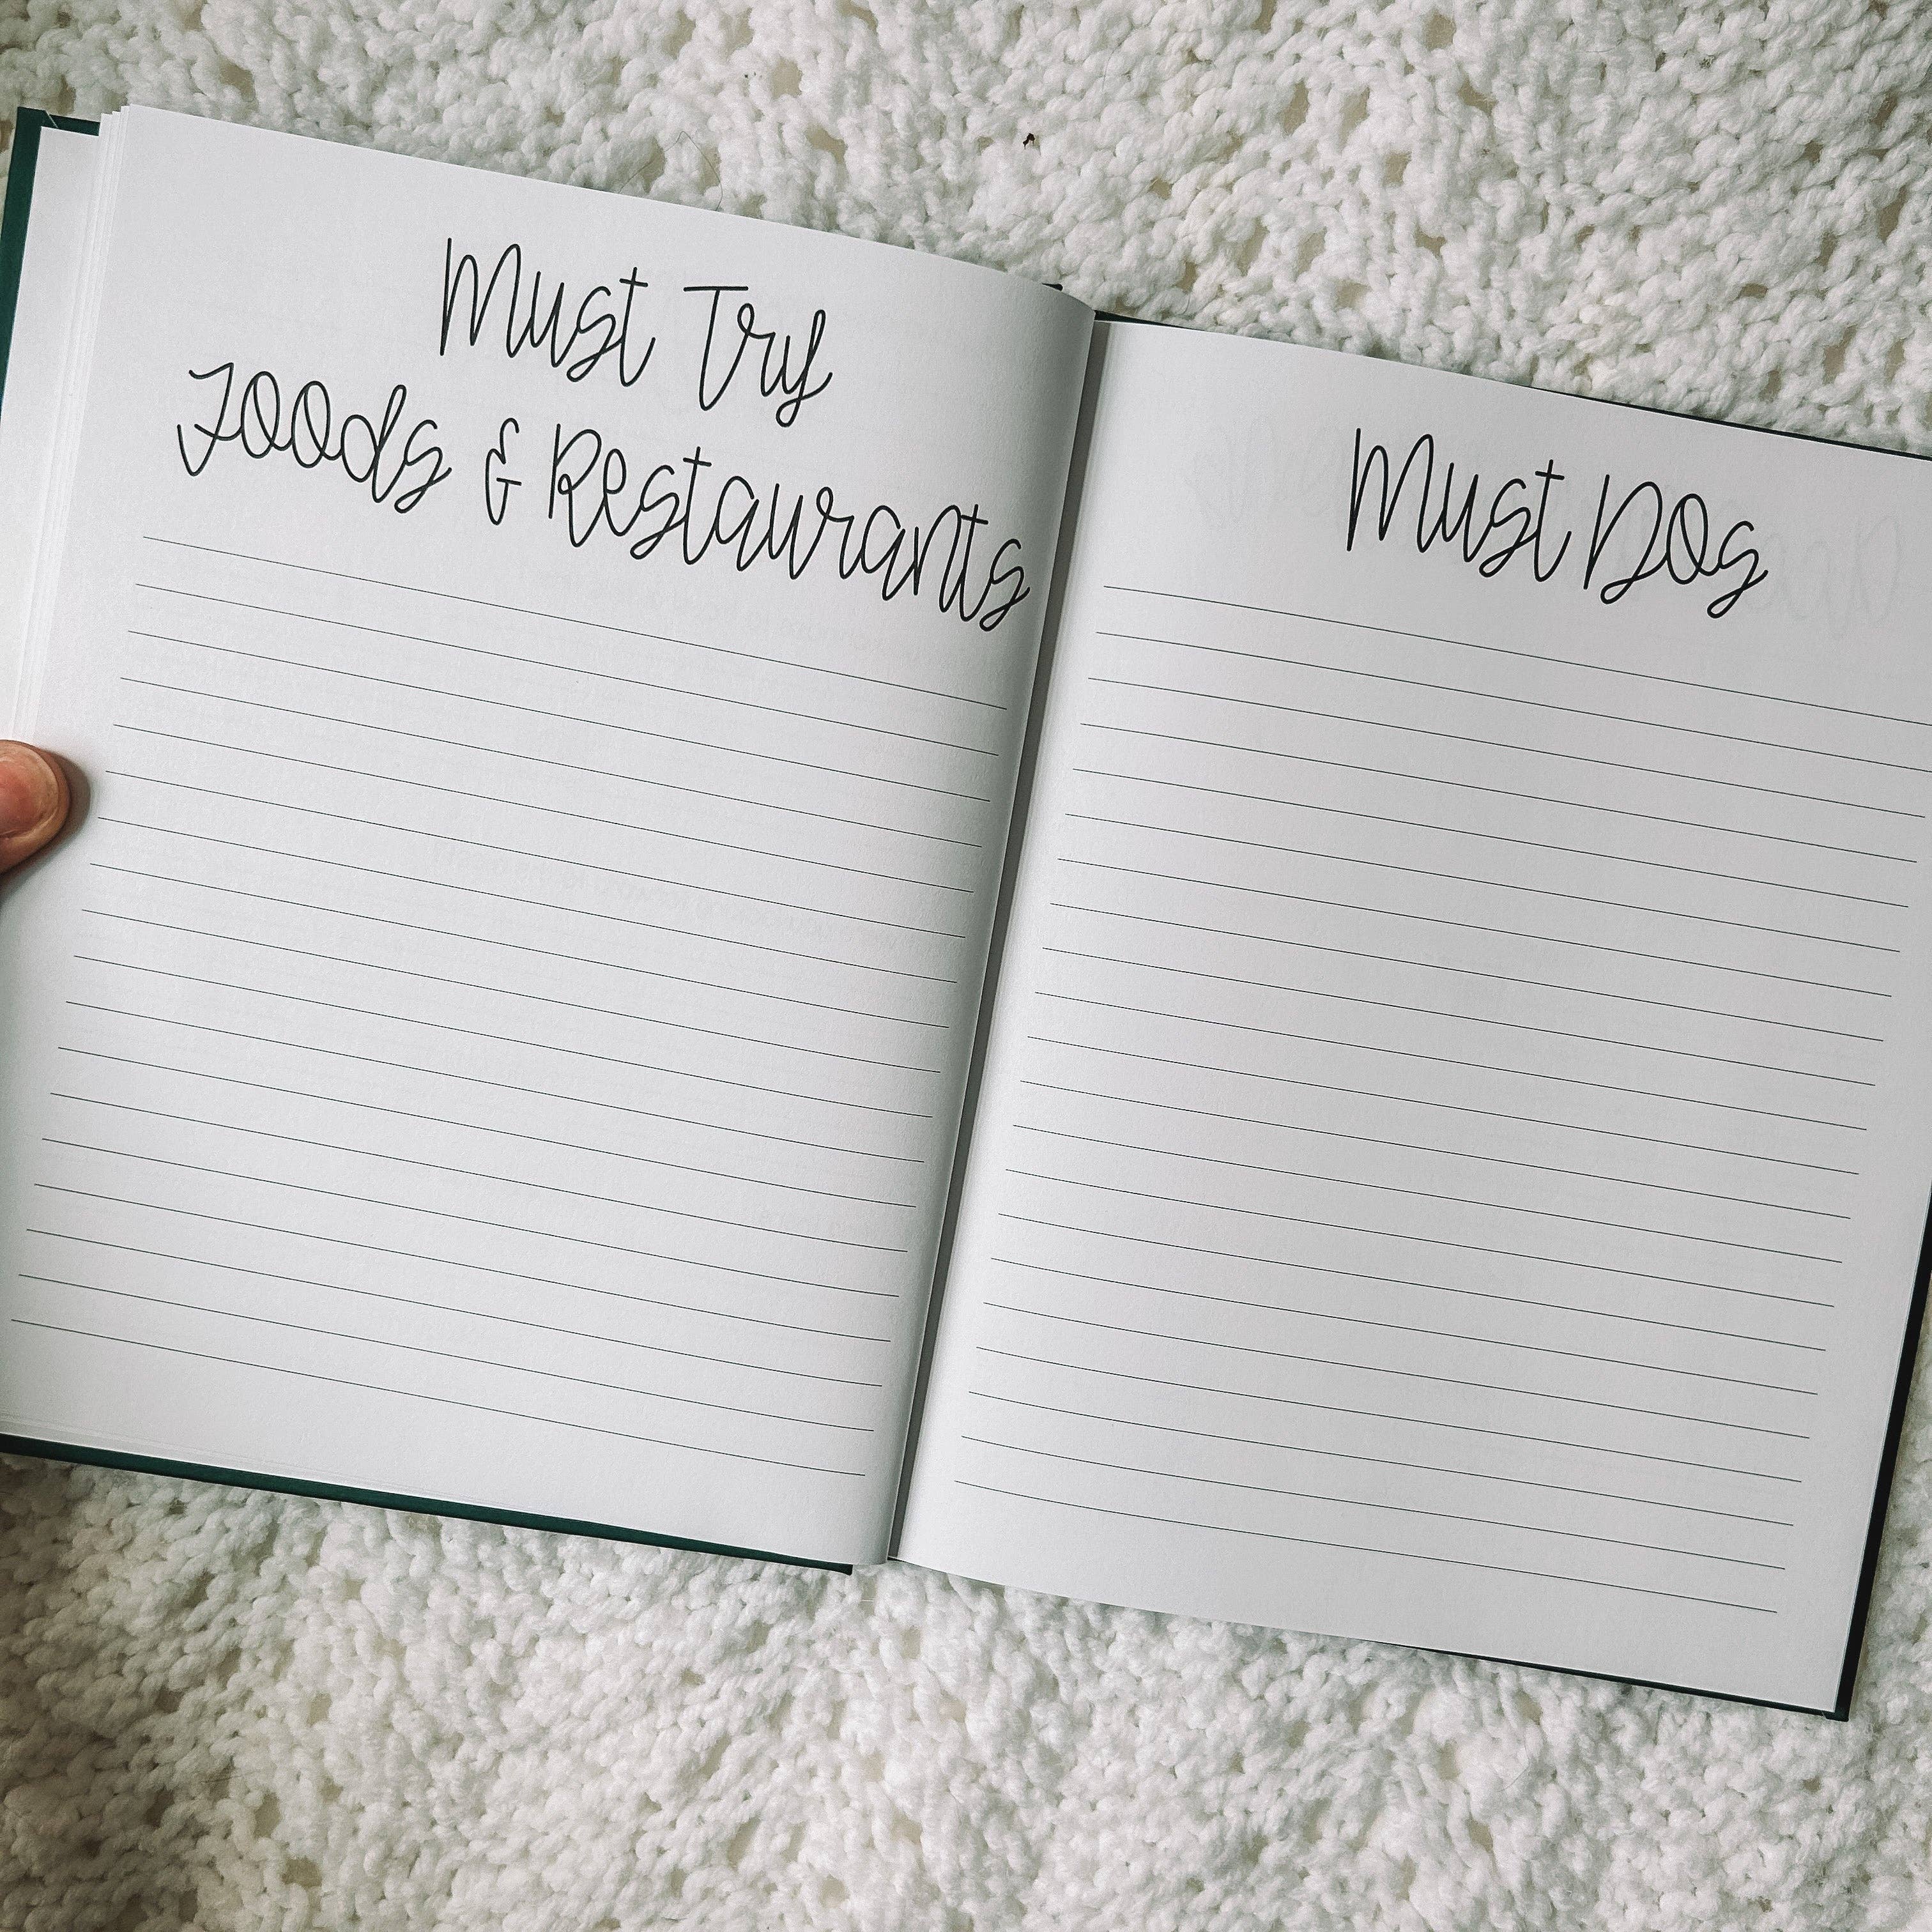 Must Try
Foods & Restaurants
Must Dos